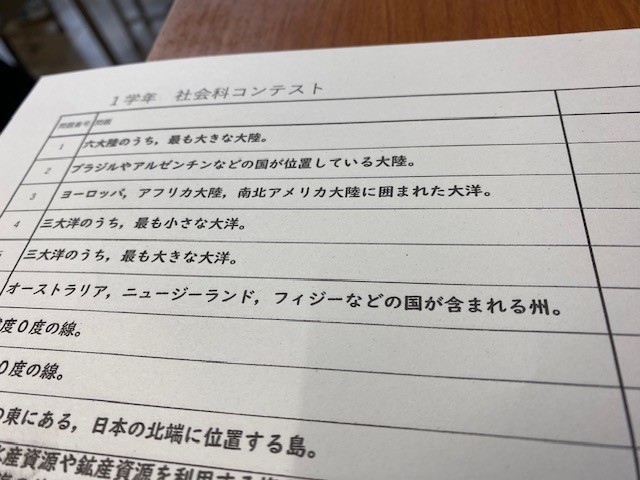 １学年　社会科コンテスト
問題番号 問題
1 六大陸のうち，最も大きな大陸。
2 ブラジルやアルゼンチンなどの国が位置している大陸。
3 ヨーロッパ，アフリカ大陸，南北アメリカ大陸に囲まれた大洋。
4 三大洋のうち，最も小さな大洋。
三大洋のうち，最も大きな大洋。
オーストラリア，ニュージーランド，フィジーなどの国が含まれる州。
度０度の線。
０度の線。
の東にある，日本の北端に位置する島。
産資源や鉱産資源を利用する